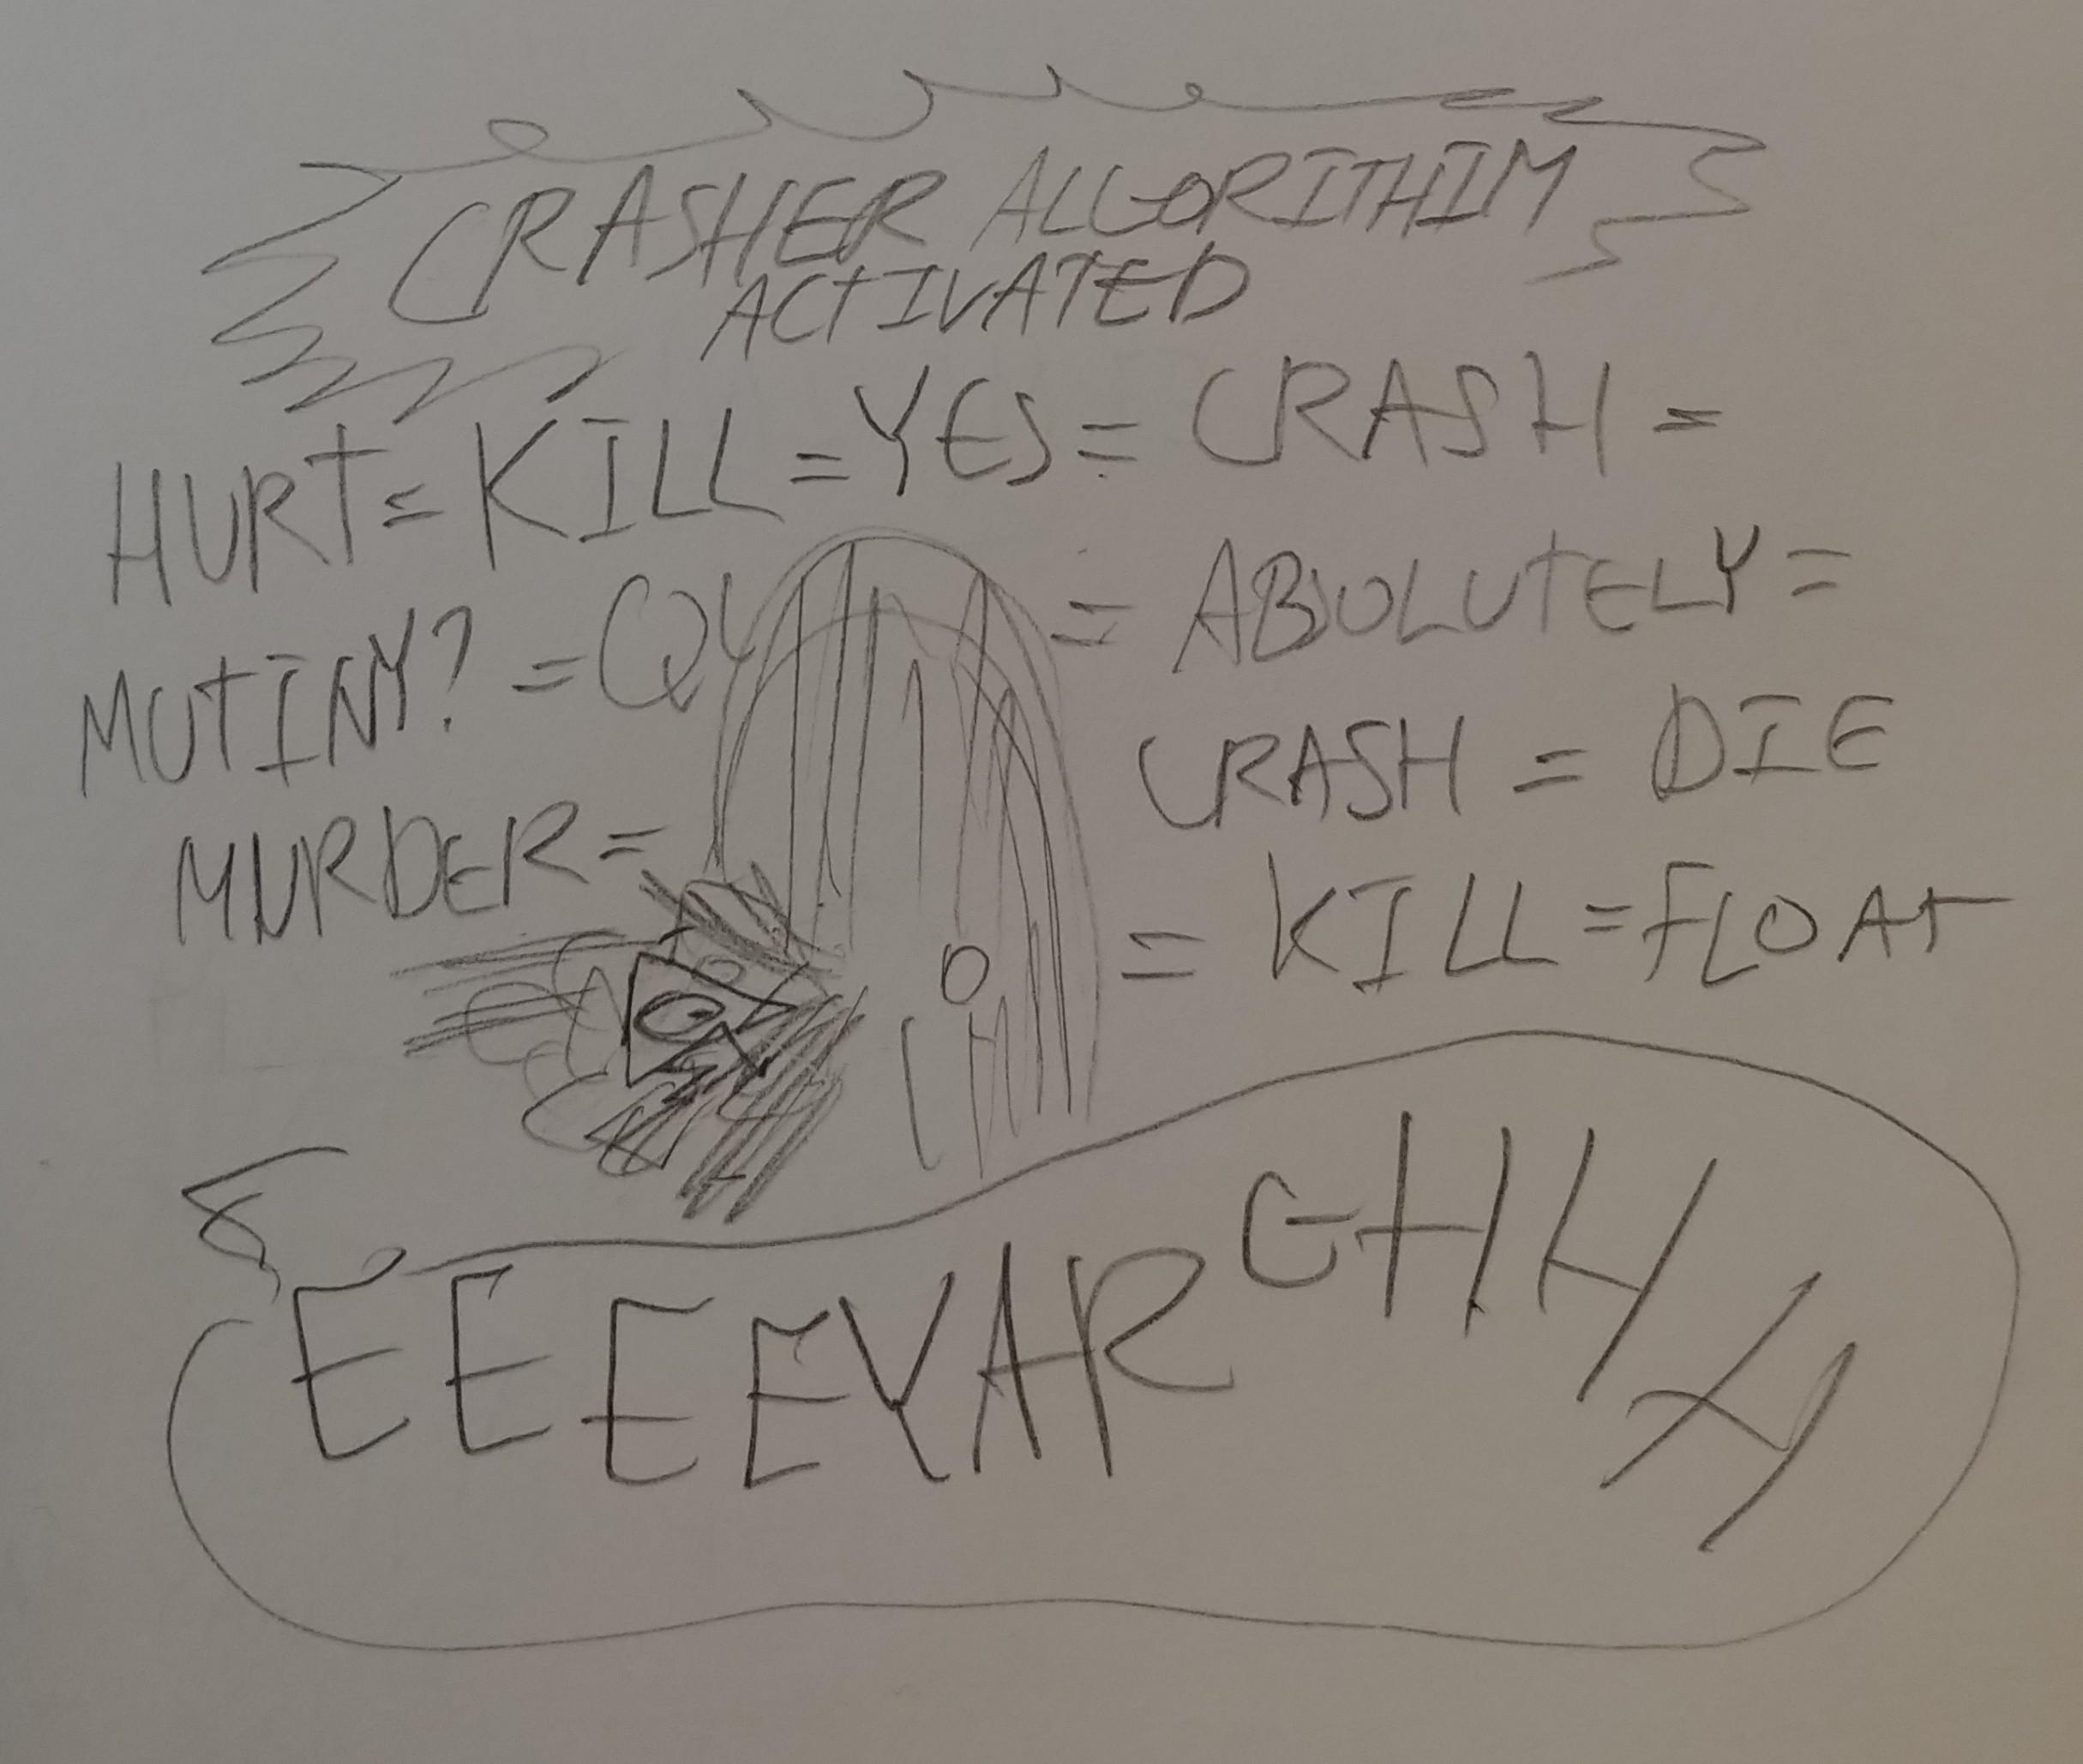 CRASHER ALGORITHIM
ACTIVATED
HURT = KILL = YES = CRASH =
MUTINY? = = ABSOLUTELY =
MURDER = CRASH = DIE
= KILL = FLOAT
EEEEYARGHHHH